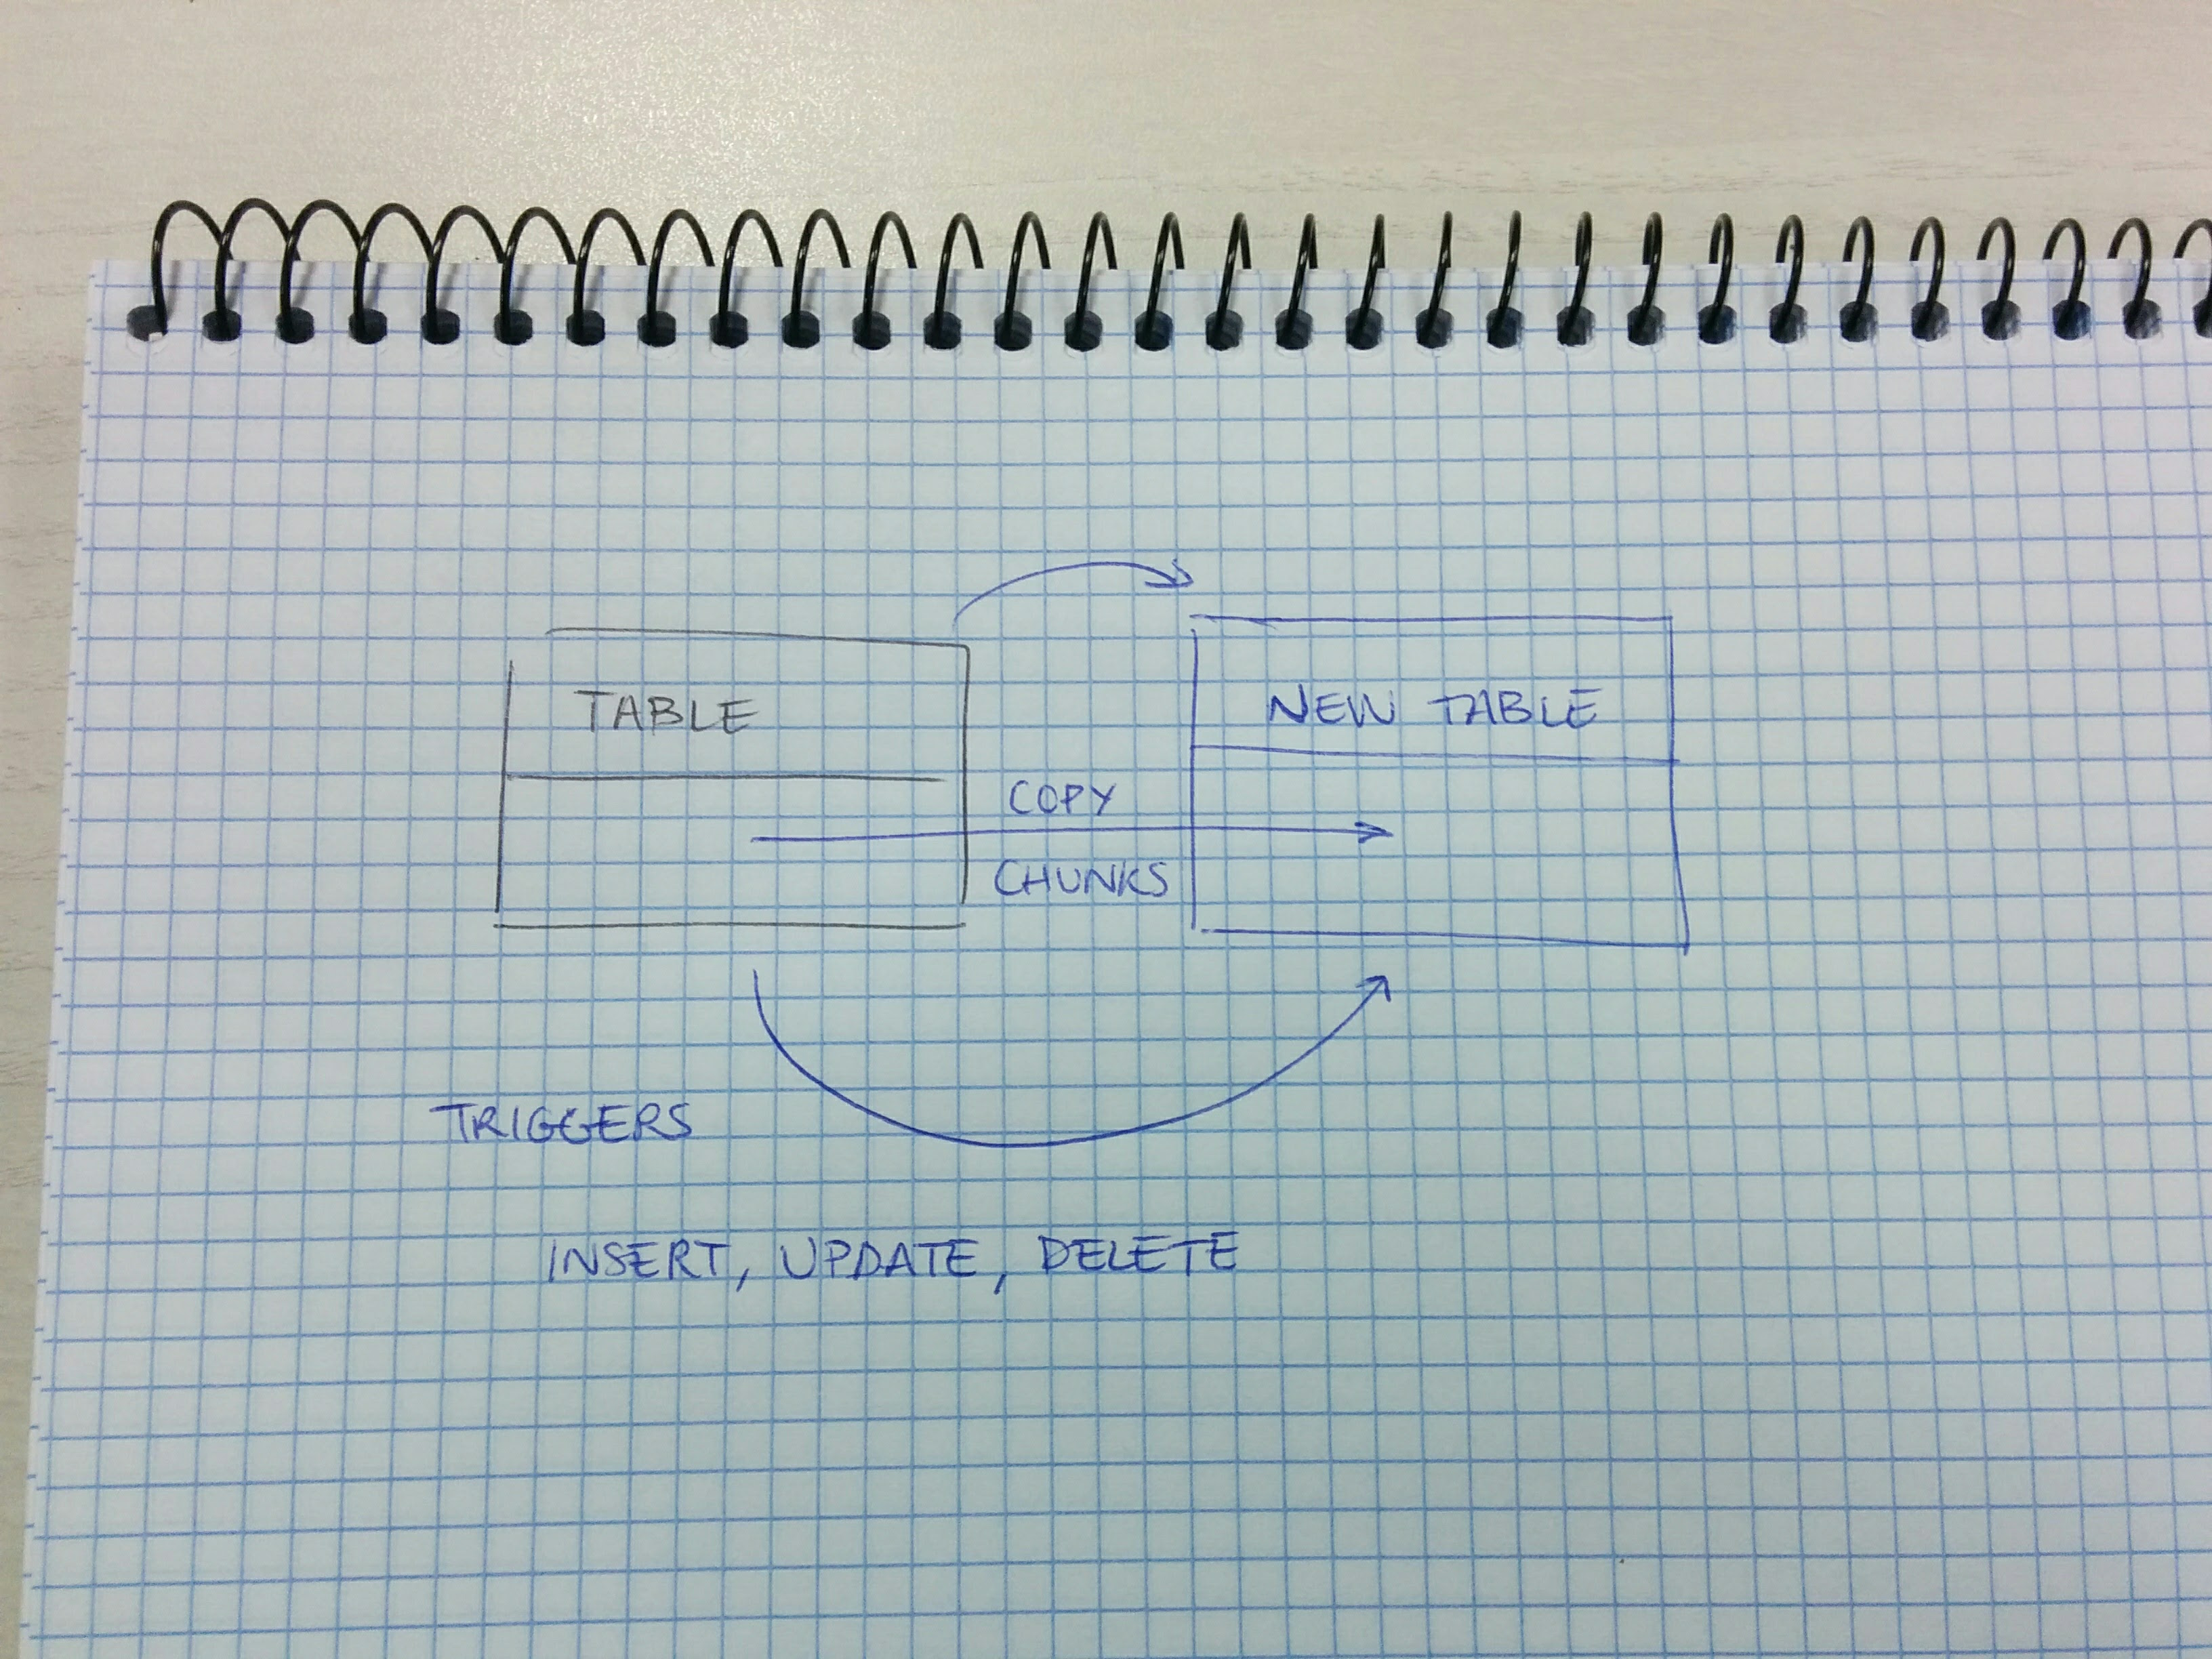 TABLE
NEW TABLE
COPY
CHUNKS
TRIGGERS
INSERT, UPDATE, DELETE